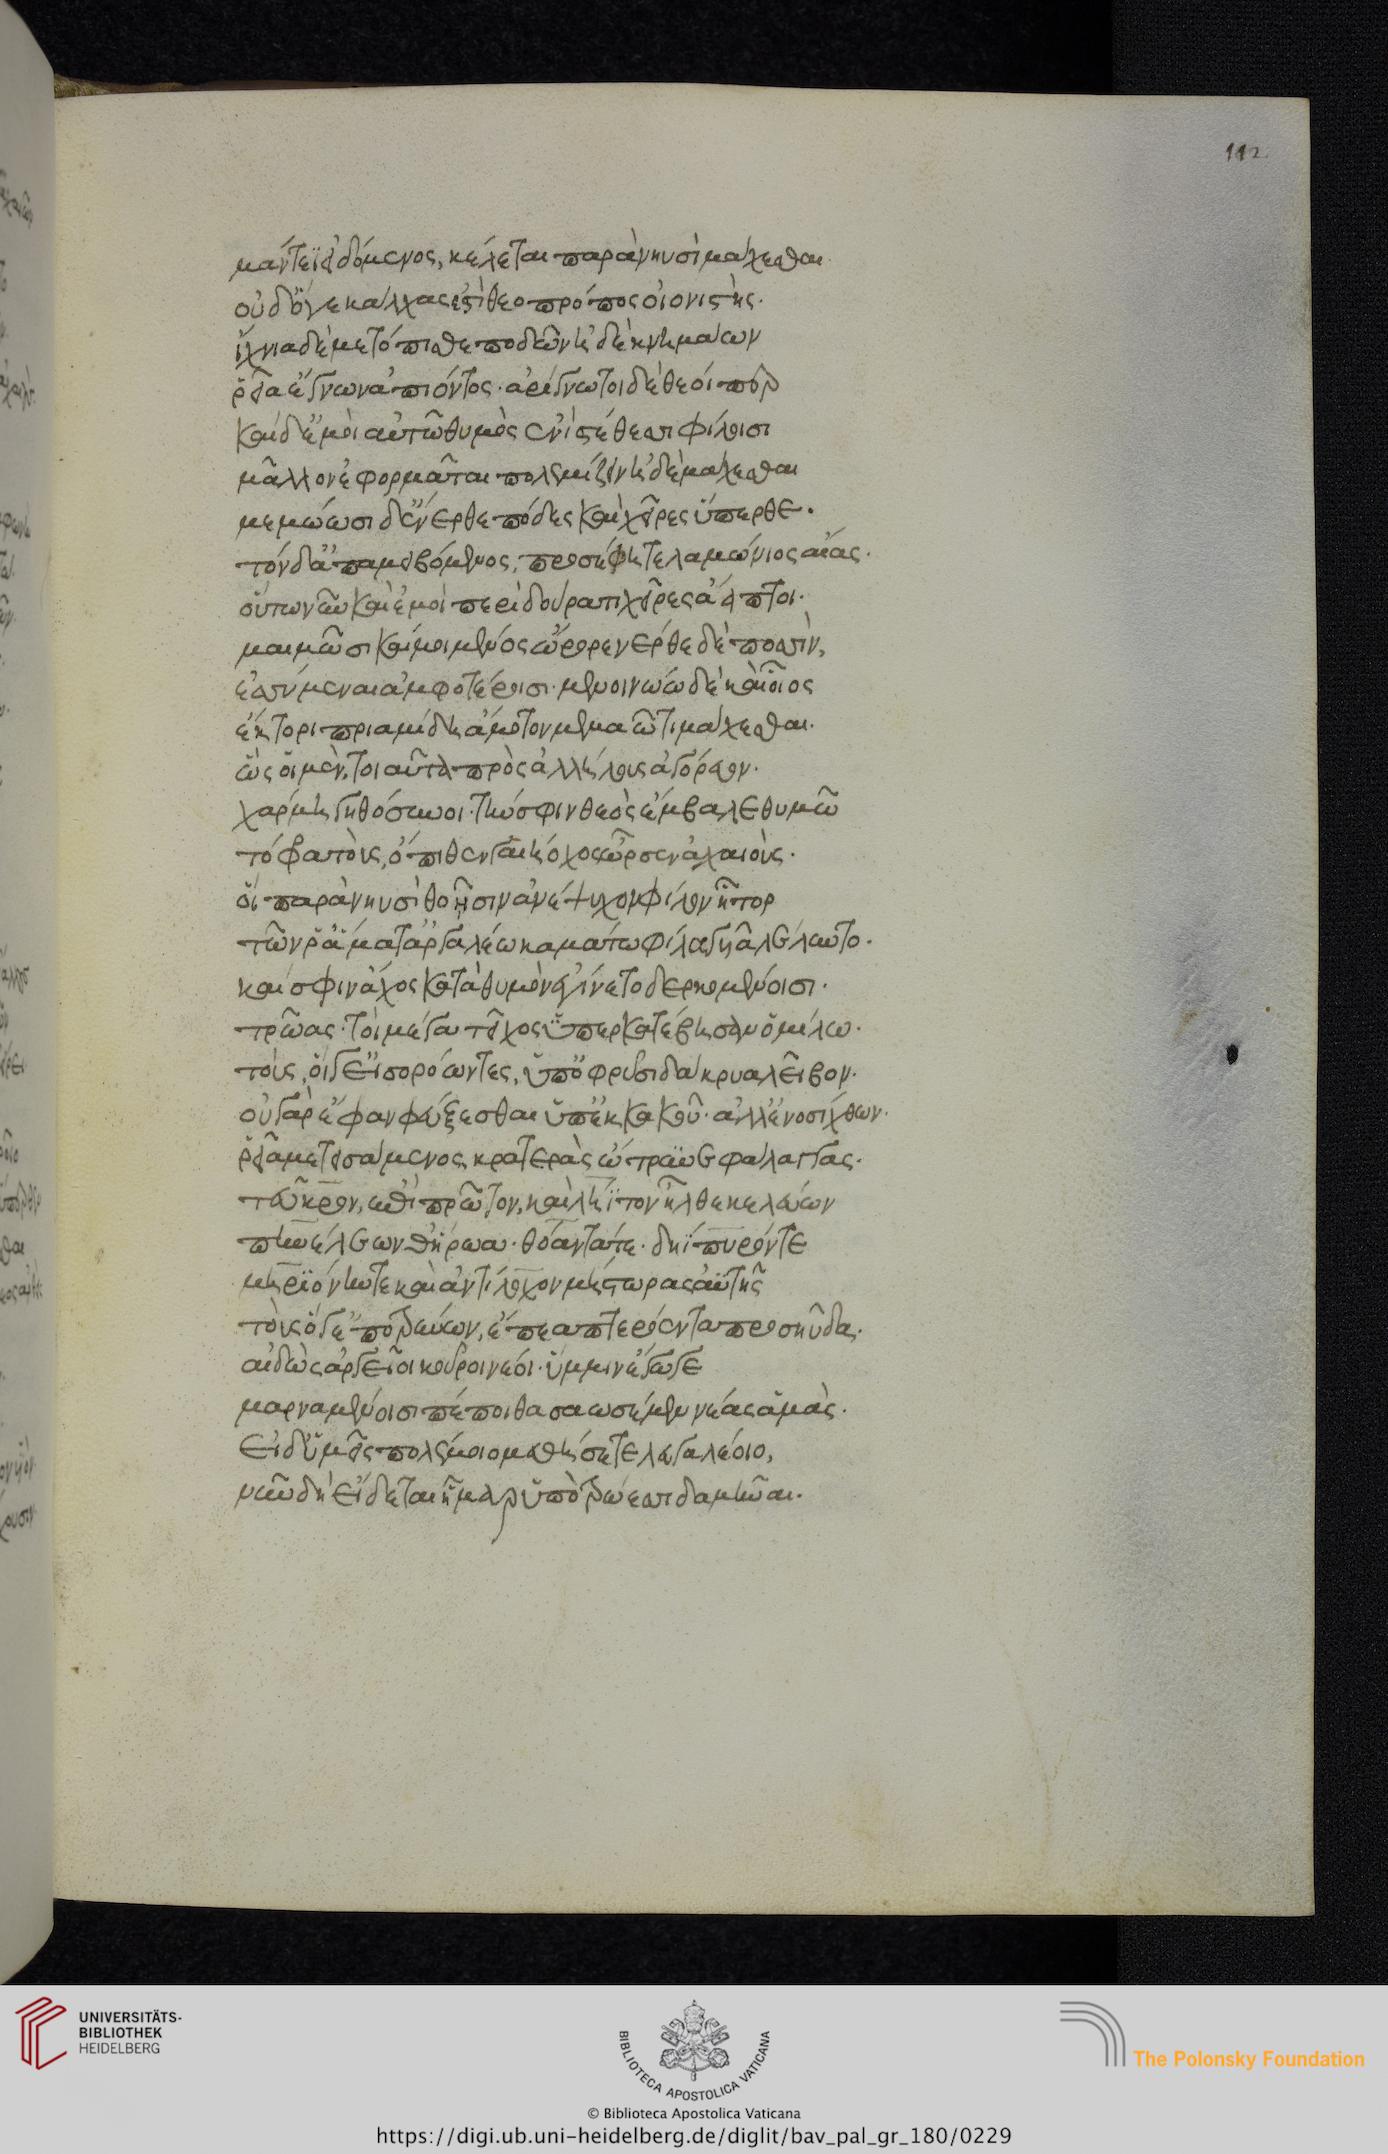 112
μάντεϊ εἰδόμενος, κέλεται παρὰ νηυσὶ μάχεσθαι.
οὐδ' ὅγε κάλχας ἐστὶ θεοπρόπος οἰονιστής.
ἴχνια δὲ μετόπισθε ποδῶν ἠδὲ κνημάων
ῥεῖα ἔγνων ἀπιόντος. ἀρίγνωτοι δὲ θεοί περ
καὶ δ' ἐμοὶ αὐτῶ θυμὸς ἐνὶ στήθεσσι φίλοισι
μᾶλλον ἐφορμᾶται πολεμίζειν ἠδὲ μάχεσθαι
μεμώωσι δ' ἔνερθε πόδες καὶ χεῖρες ὕπερθε.
τόνδ' ἀπαμειβόμενος, προσέφη τελαμώνιος αἴας.
οὕπω νῦν καὶ ἐμοὶ περὶ δούρασι χεῖρες ἄαπτοι.
μαιμῶσι καί μοι μένος ὤρορε νέρθε δὲ ποσσὶν,
ἔσσυμεναι ἀμφοτέροισι. μενοινώω δὲ καὶ οἶος
ἕκτορι πριαμίδη ἄμοτον μεμαῶτι μάχεσθαι.
ὣς οἳ μὲν, τοιαῦτα πρὸς ἀλλήλους ἀγόρευον.
χάρμη γηθόσυνοι. τήν σφιν θεὸς ἔμβαλε θυμῶ
τόφρα τοὺς, ὄπιθεν γαιήοχος ὦρσεν ἀχαιούς.
οἳ παρὰ νηυσὶ θοῆσιν ἀνέψυχον φίλον ἦτορ
τῶν ῥ' ἅματ' ἀργαλέω καμάτω φίλα γυῖα λέλυντο.
καί σφιν ἄχος κατὰ θυμὸν ἐγίνετο δερκομένοισι.
τρῶας. τοὶ μέγα τεῖχος ὑπερκατέβησαν ὁμίλω.
τοὺς, οἵγ' εἰσορόωντες, ὑπ' ὀφρύσι δάκρυα λεῖβον.
οὐ γὰρ ἔφαν φεύξεσθαι ὑπ' ἐκ κακοῦ. ἀλλ' ἐνοσίχθων.
ῥεῖα μετεισάμενος κρατερὰς ὤτρυνε φάλαγγας.
τεῦκρον, ἐπὶ πρῶτον, καὶ λήϊτον ἦλθε κελεύων
πηνέλεων θ' ἥρωα. θόαντά τε. δηΐπυρόν τε
μηριόνην τε καὶ ἀντίλοχον μήστωρας ἀϋτῆς
τοὺς ὅγ' ἐποτρύνων, ἔπεα πτερόεντα προσηύδα.
αἰδὼς ἀργεῖοι κοῦροι νέοι. ὔμμιν ἔγωγε
μαρναμένοισι πέποιθα σαωσέμεναι νέας ἁμάς.
εἰ δ' ὑμεῖς πολέμοιο μεθήσετε λευγαλέοιο,
νῦν δὴ εἴδεται ἦμαρ ὑπὸ τρώεσσι δαμῆναι.
UNIVERSITÄTS-
BIBLIOTHEK
HEIDELBERG
BIBLIOTECA APOSTOLICA VATICANA
The Polonsky Foundation
© Biblioteca Apostolica Vaticana
https://digi.ub.uni-heidelberg.de/diglit/bav_pal_gr_180/0229